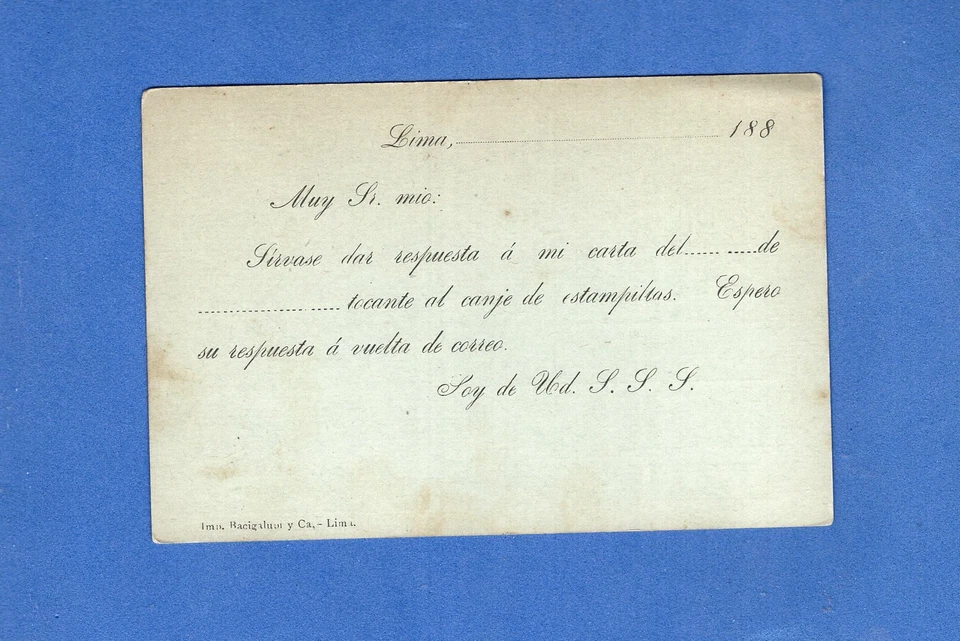 Lima, 188
Muy Sr. mio:
Sírvase dar respuesta á mi carta del...... .....de
.................... ..... tocante al canje de estampillas. Espero
su respuesta á vuelta de correo.
Soy de Ud. S. S. S.
Imp. Bacigalupi y Ca,- Lima.